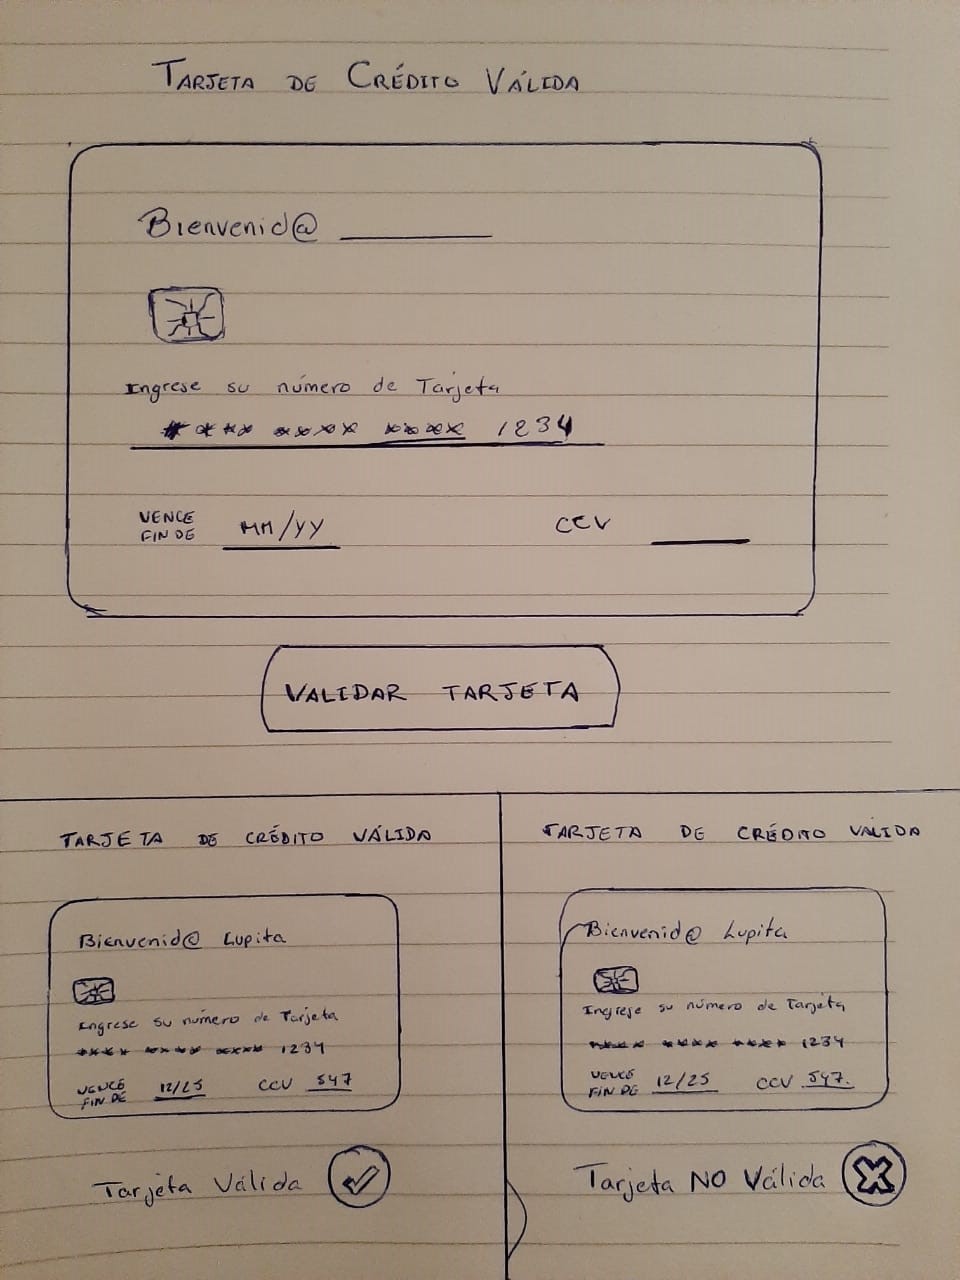 TARJETA DE CRÉDITO VÁLIDA
Bienvenid@
Ingrese su número de Tarjeta
**** **** **** 1234
VENCE
FIN DE
MM/YY
CCV
VALIDAR TARJETA
TARJETA DE CRÉDITO VÁLIDA
Bienvenid@ Lupita
Ingrese su número de Tarjeta
**** **** **** 1234
VENCE
FIN DE
12/25
CCV 547
Tarjeta Válida
TARJETA DE CRÉDITO VÁLIDA
Bienvenid@ Lupita
Ingrese su número de Tarjeta
**** **** **** 1234
VENCE
FIN DE
12/25
CCV 547.
Tarjeta NO Válida